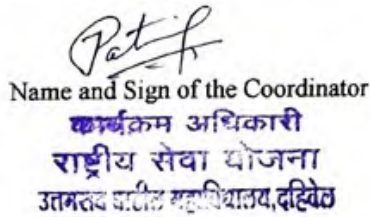 Name and Sign of the Coordinator
कार्यक्रम अधिकारी
राष्ट्रीय सेवा योजना
उत्तमराव पाटील महाविद्यालय, दहिवेल